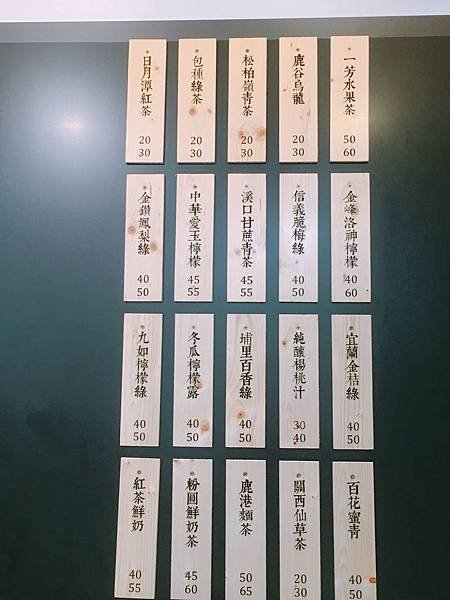 一芳水果茶
50
60
鹿谷烏龍
20
30
松柏嶺青茶
20
30
包種綠茶
20
30
日月潭紅茶
20
30
金峰洛神檸檬
40
60
信義脆梅綠
40
50
溪口甘蔗青茶
45
55
中華愛玉檸檬
45
55
金鑽鳳梨綠
40
50
宜蘭金桔綠
40
50
純釀楊桃汁
30
40
埔里百香綠
40
50
冬瓜檸檬露
40
50
九如檸檬綠
40
50
百花蜜青
40
50
關西仙草茶
20
30
鹿港麵茶
50
65
粉圓鮮奶茶
45
60
紅茶鮮奶
40
55